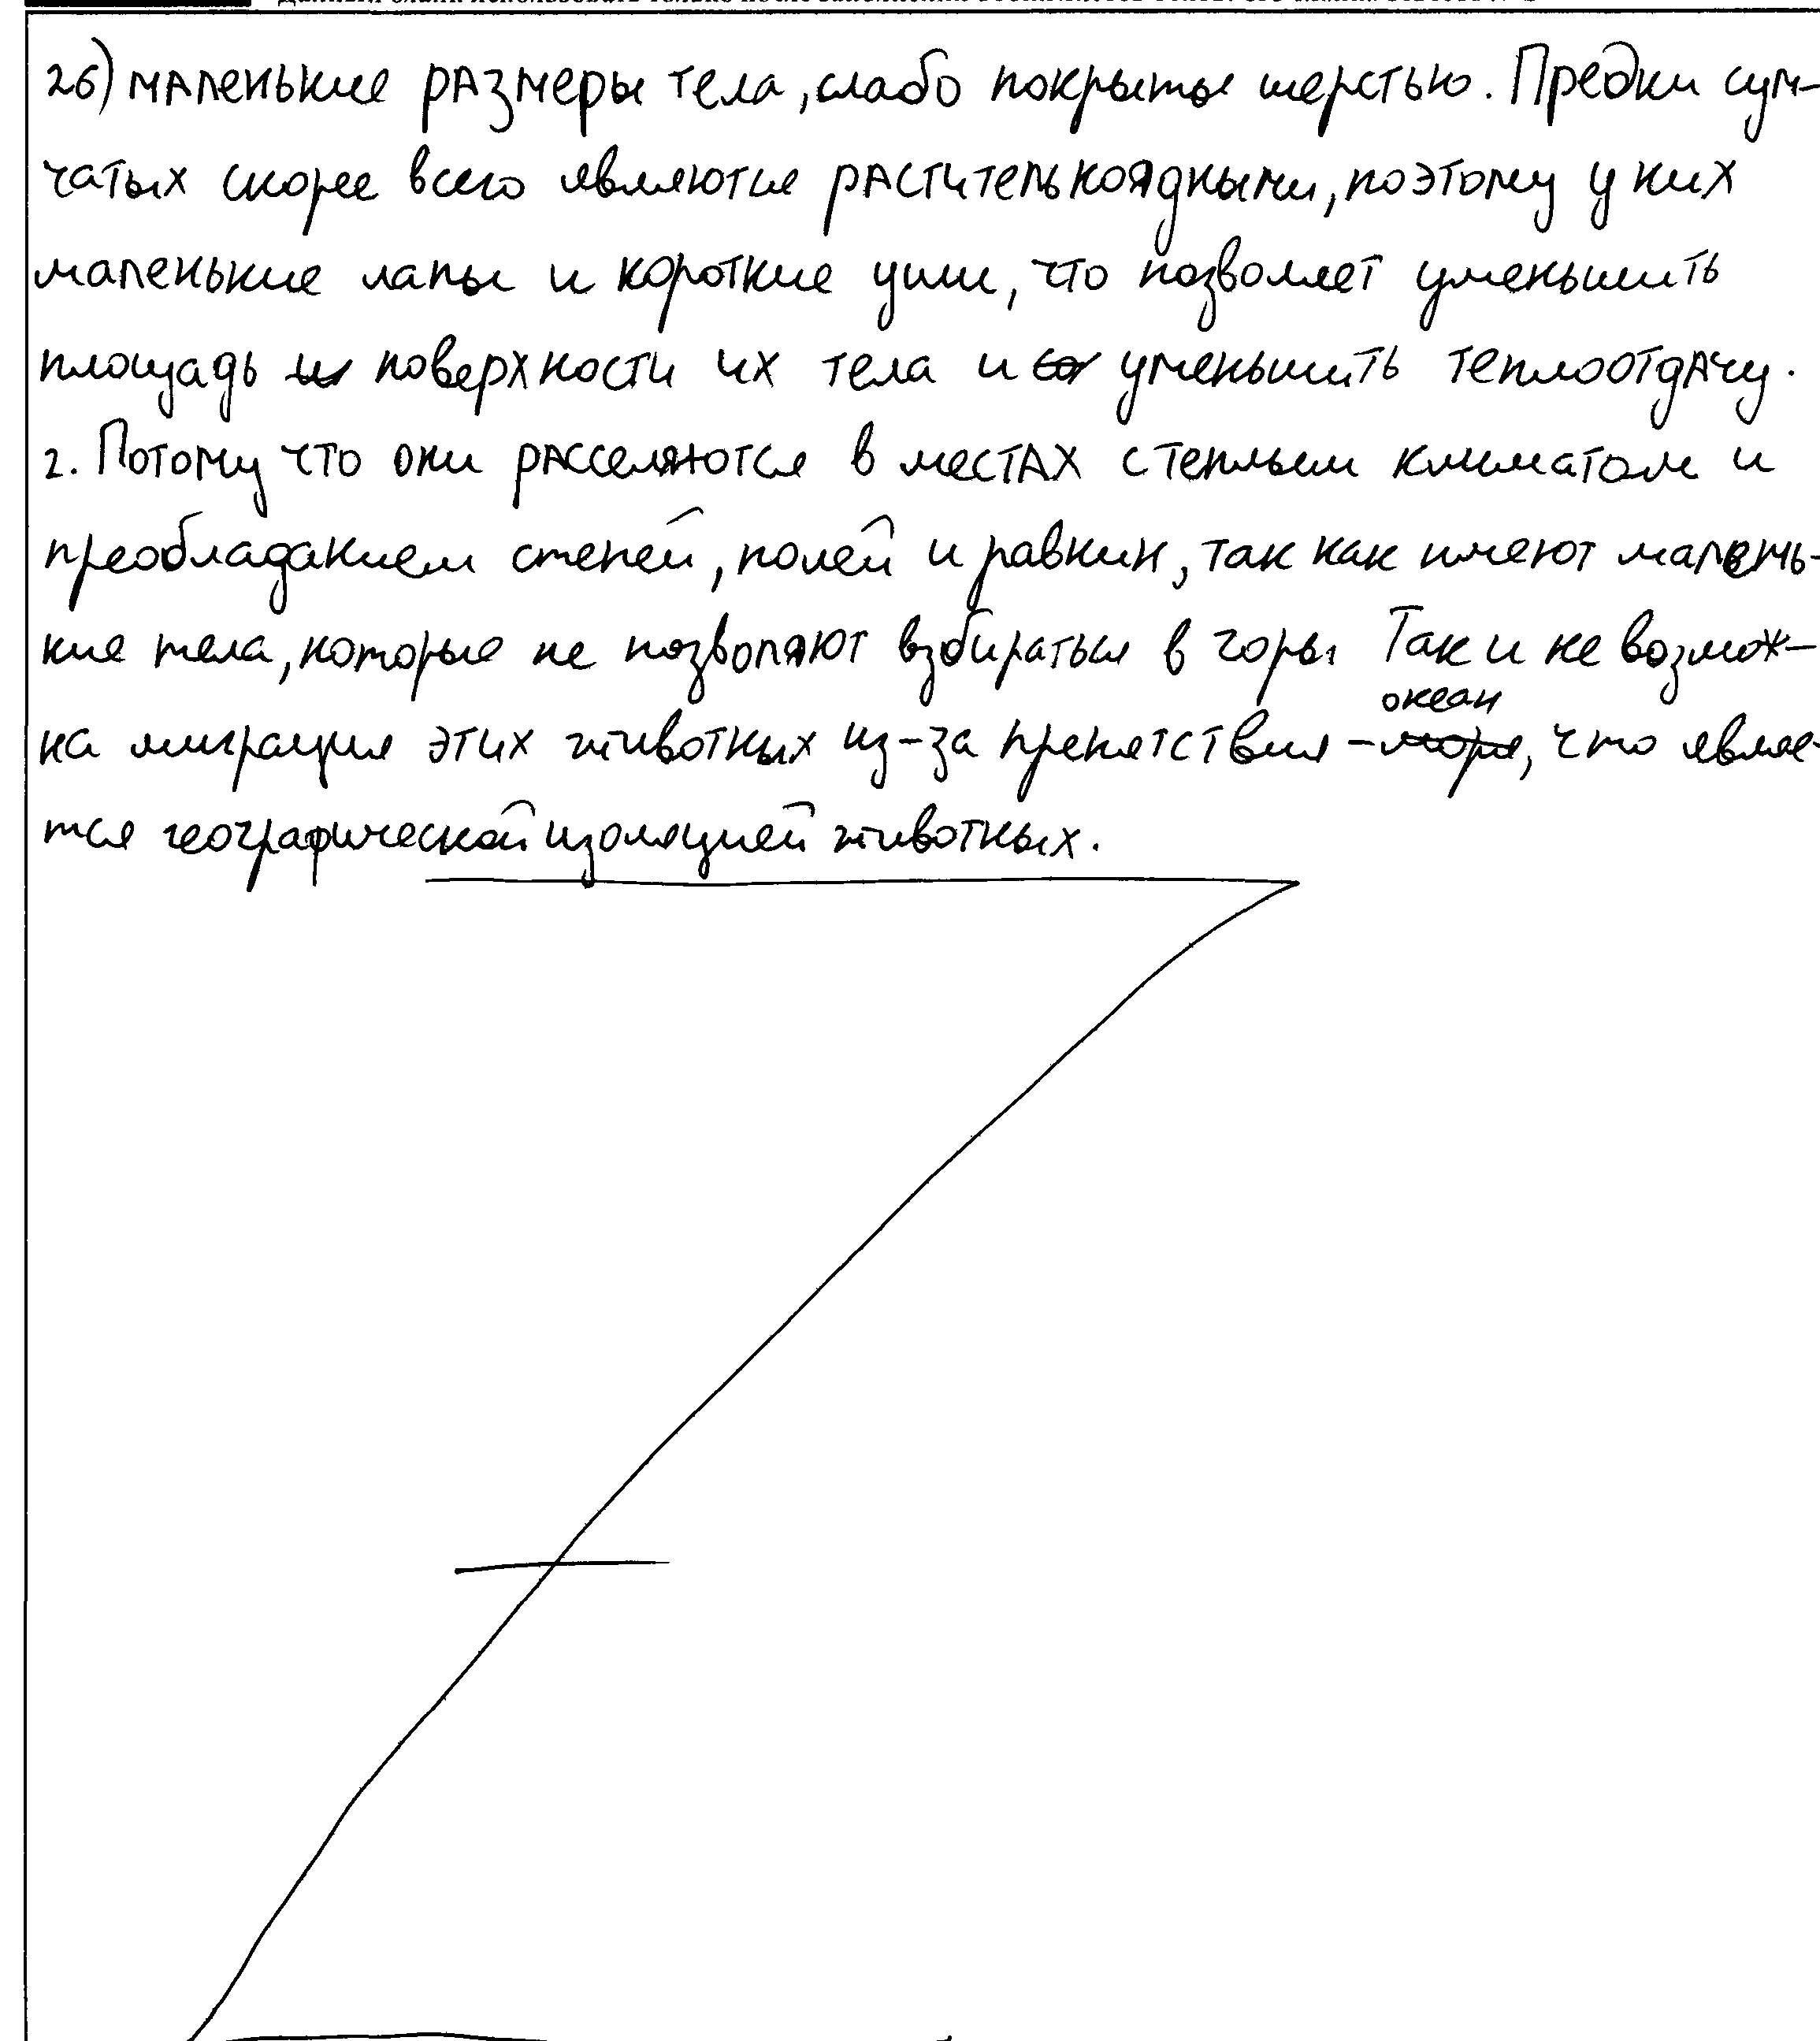 26) маленькие размеры тела, слабо покрыты шерстью. Предки сум-
чатых скорее всего являются растительноядными, поэтому у них
маленькие лапы и короткие уши, что позволяет уменьшить
площадь поверхности их тела и уменьшить теплоотдачу.
2. Потому что они расселяются в местах с теплым климатом и
преобладанием степей, полей и равнин, так как имеют малень-
кие тела, которые не позволяют взбираться в горы. Так и не возмож-
на миграция этих животных из-за препятствия - океан, что являе-
тся географической изоляцией животных.